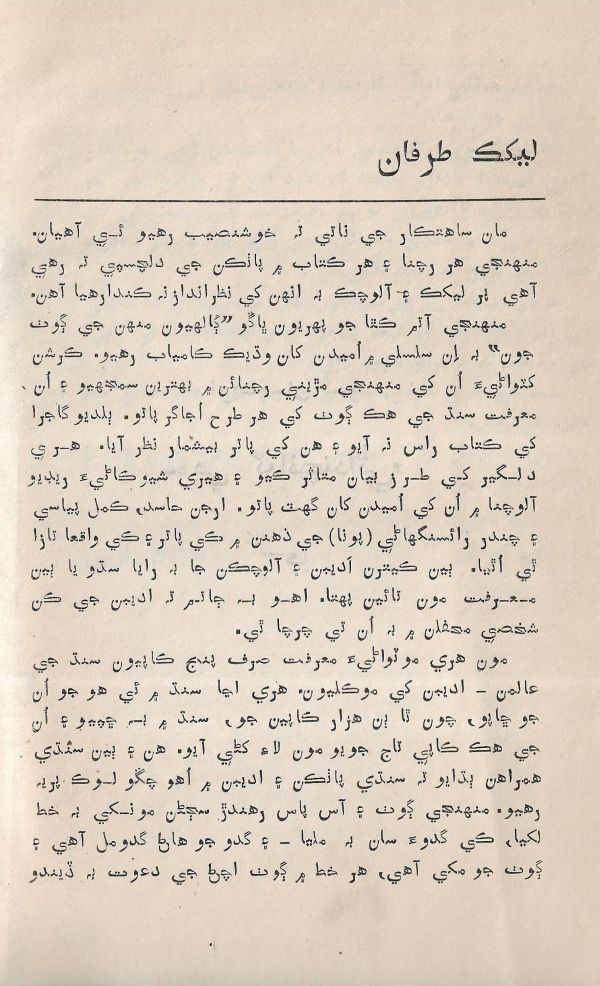 ليکڪ طرفان
مان ساهتڪار جي ناتي تہ خوشنصيب رهيو ئي آهيان.
منهنجي هر رچنا ۽ هر ڪتاب ۾ پاٺڪن جي دلچسپي تہ رهي
آهي پر ليکڪ ۽ آلوچڪ بہ انهن کي نظرانداز نہ ڪندارهيا آهن.
منهنجي آتم ڪٿا جو پهريون ڀاڱو ”ڳالهيون منهن جي ڳوٺ
جون“ بہ اِن سلسلي ۾ اُميدن کان وڌيڪ ڪامياب رهيو. ڪرشن
کٽواڻيءَ اُن کي منهنجي مڙيني رچنائن ۾ بهترين سمجهيو ۽ اُن
معرفت سنڌ جي هڪ ڳوٺ کي هر طرح اُجاگر پاتو. بلديو گاجرا
کي ڪتاب راس نہ آيو ۽ هن کي پاتر بيشمار نظر آيا. هري
دلگير کي طرز بيان متاثر ڪيو ۽ هيري شيوڪاڻيءَ ريڊيو
آلوچنا ۾ اُن کي اُميدن کان گهٽ پاتو. ارجن حاسد، ڪمل پياسي
۽ چندر رائسنگهاڻي (پونا) جي ذهنن ۾ ڪي پاتر ۽ ڪي واقعا تازا
ٿي اُٿيا. ٻين ڪيترن اَديبن ۽ آلوچڪن جا بہ رايا سڌو يا ٻين
معرفت مون تائين پهتا. اهو بہ ڄاتم تہ اديبن جي ڪن
شخصي محفلن ۾ بہ اُن تي چرچا ٿي.
مون هري موٽواڻيءَ معرفت صرف پنج ڪاپيون سنڌ جي
عالمن - اديبن کي موڪليون. هري اڃا سنڌ ۾ ئي هو جو اُن
جو ڇاپو، چون ٿا ٻن هزار ڪاپين جو، سنڌ ۾ بہ ڇپيو ۽ اُن
جي هڪ ڪاپي تاج جويو مون لاءِ کڻي آيو. هن ۽ ٻين سنڌي
همراهن ٻڌايو تہ سنڌي پاٺڪن ۽ اديبن ۾ اُهو چڱو لوڪ پريہ
رهيو. منهنجي ڳوٺ ۽ آس پاس رهندڙ سڄڻن مونکي بہ خط
لکيا، ڪي گدوءَ سان بہ مليا - ۽ گدو جو هاڻ گدومل آهي ۽
ڳوٺ جو مکي آهي، هر خط ۾ ڳوٺ اچڻ جي دعوت بہ ڏيندو